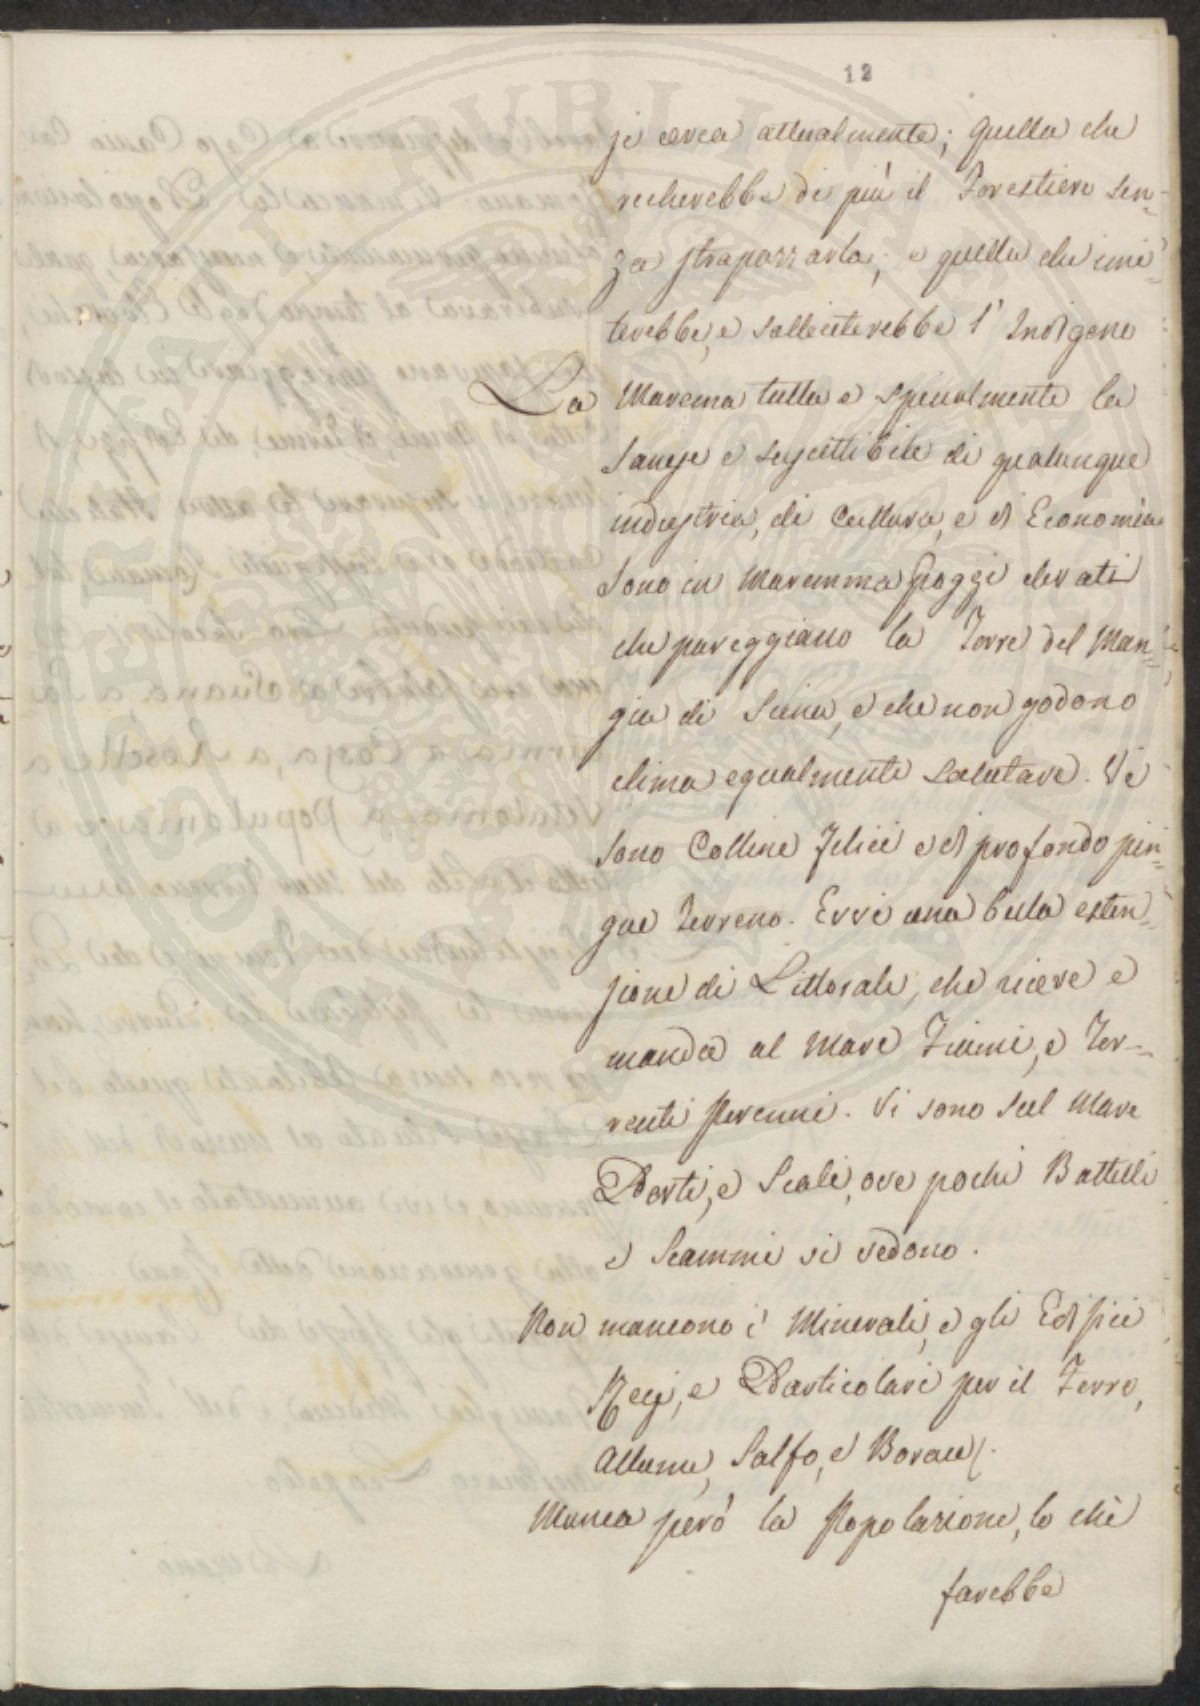 12
se cerca attualmente; quella che
recherebbe di più il Forestiere sen-
za strapazzarla; e quella che uni-
terebbe, e solleciterebbe l' Indigene
La Maremma tutta e specialmente la
Sanese è suscettibile di qualunque
industria, di Cultura, e di Economia
Sono in Maremma Poggi elevati
che pareggiano la Torre del Man-
gia di Siena, e che non godono
clima egualmente salutare. Vi
sono Colline felici e di profondo pin-
gue terreno. Evvi una bella esten-
sione di Littorale, che riceve e
manda al Mare Fiumi, e Tor-
renti perenni. Vi sono sul Mare
Porti, e Scali, ove pochi Battelli
e Scammi si vedono.
Non mancono i Minerali, e gli Edifici
Regi, e Particolari per il Ferro,
Allume, Solfo, e Borace.
Manca però la Popolazione, lo chè
farebbe